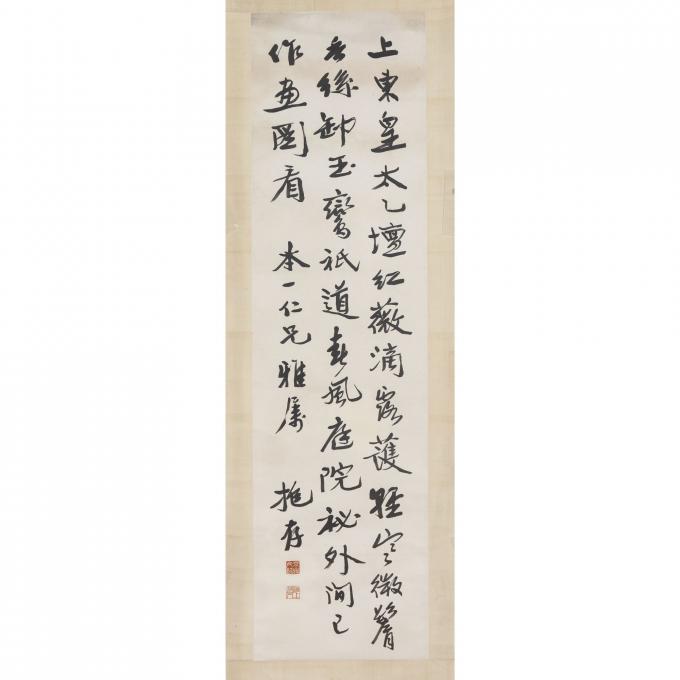 上東皇太乙壇紅薇滴露護輕寒微
香絲卸玉鸞祇道春風庭院祕外間已
作畫圖看 本一仁兄雅屬 抱存